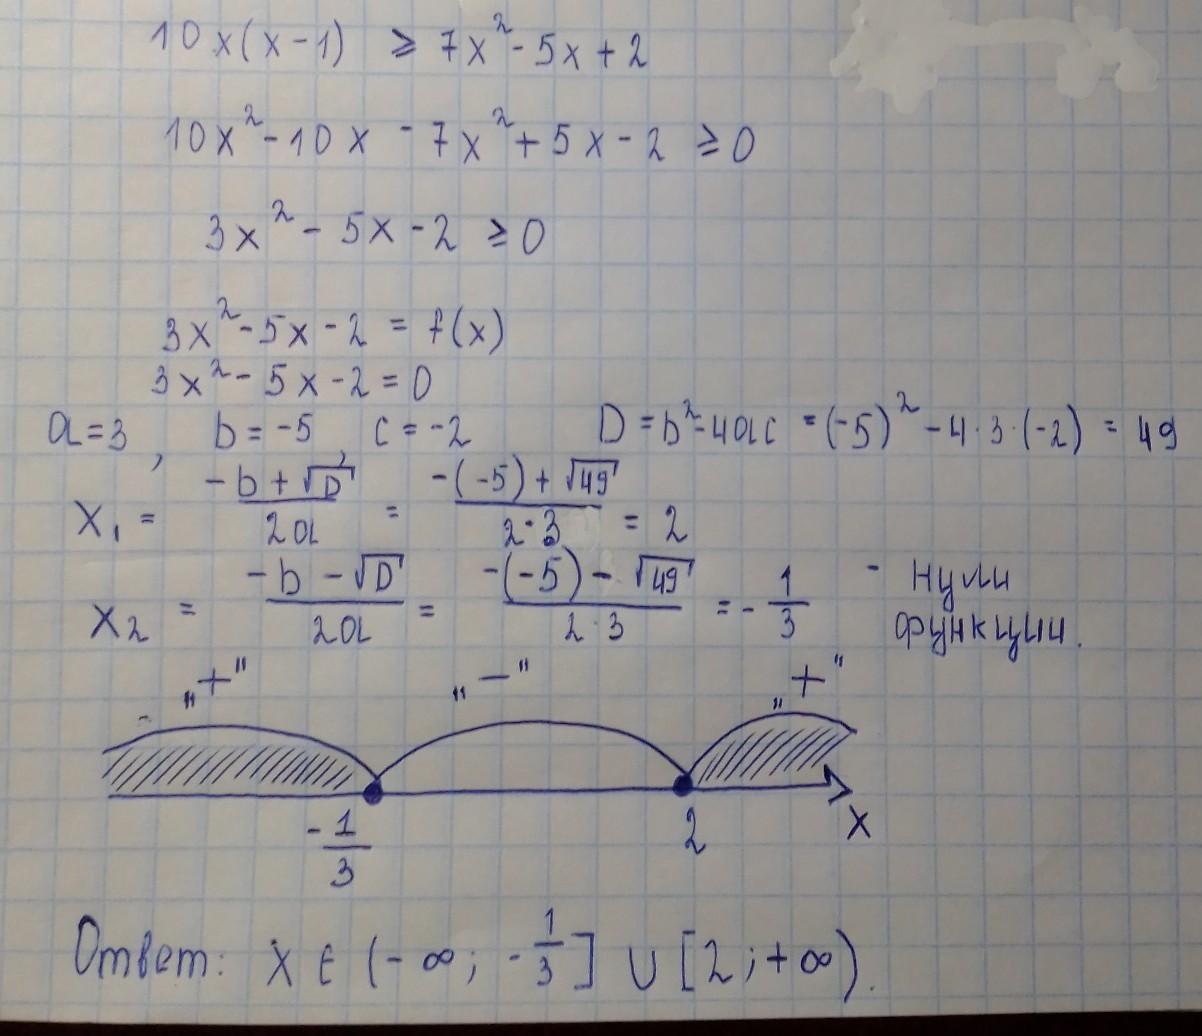 10x(x-1) ≥ 7x²-5x+2
10x²-10x -7x²+5x-2 ≥0
3x²-5x-2 ≥0
3x²-5x-2 = f(x)
3x²-5x-2=0
a=3, b=-5, c=-2 D=b²-4ac =(-5)²-4·3·(-2) = 49
x₁ = (-b+√D)/2a = (-(-5)+√49)/2·3 = 2
x₂ = (-b-√D)/2a = (-(-5)-√49)/2·3 = -1/3 - нули
функции.
„+“ „−“ „+“
-1/3 2 x
Ответ: x ∈ (-∞; -1/3] ∪ [2;+∞).